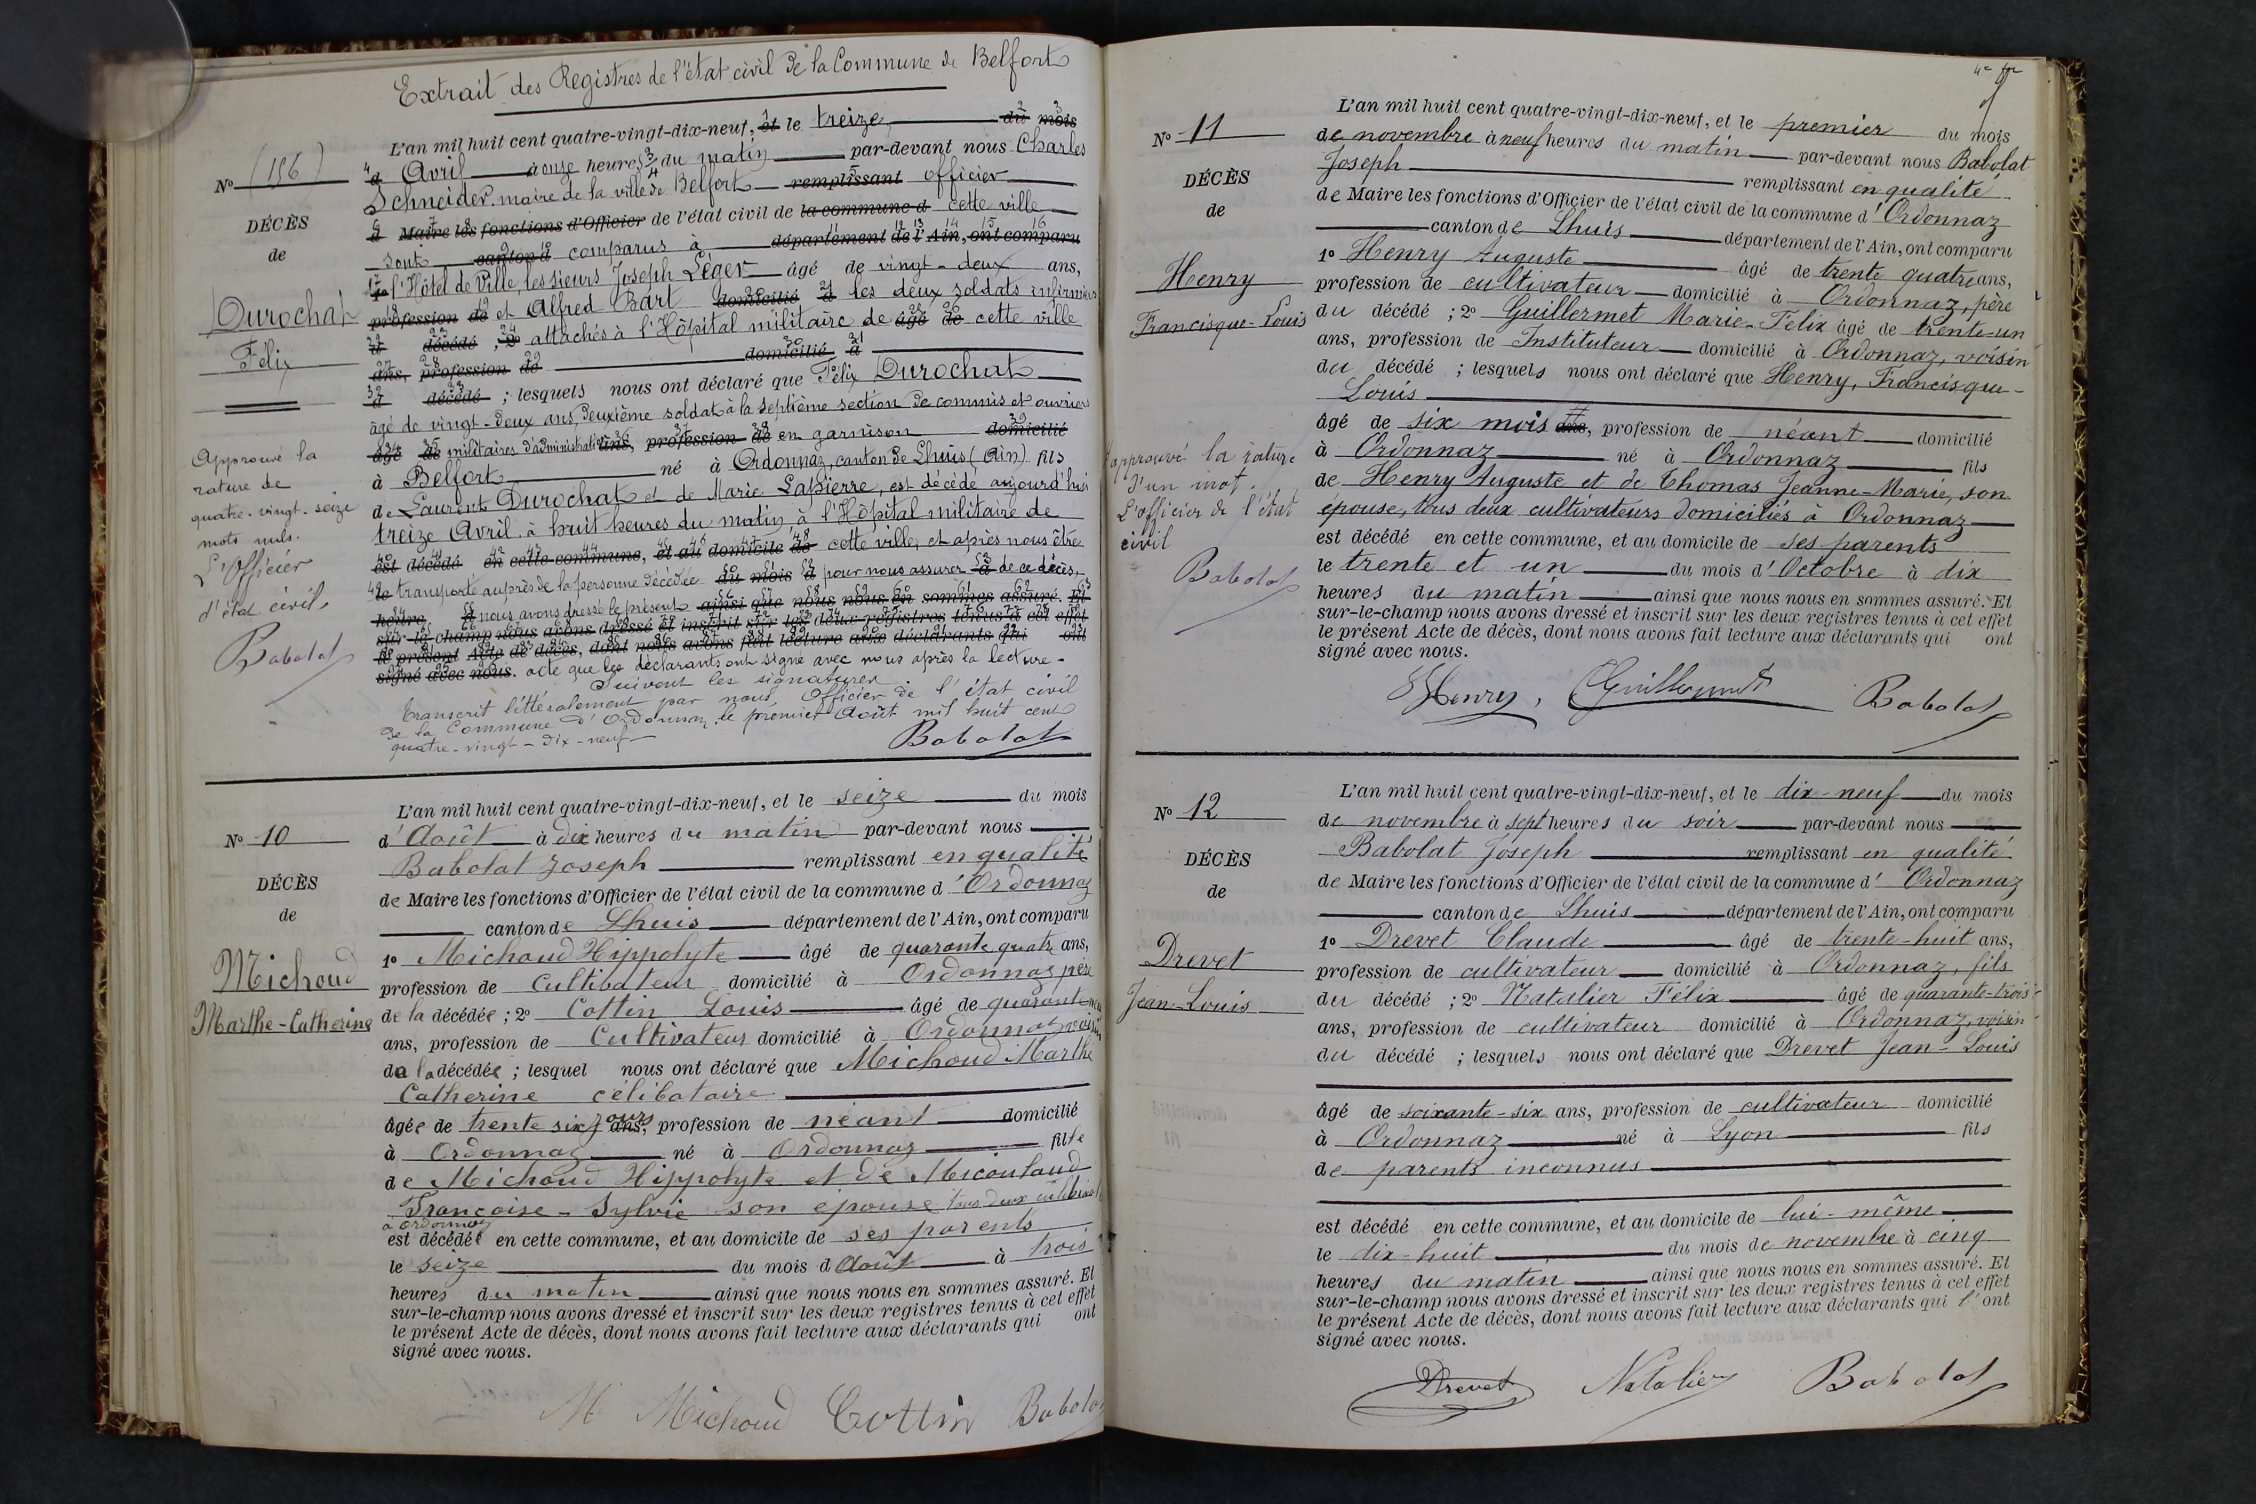 Extrait des Registres de l'état civil de la Commune de Belfort
L'an mil huit cent quatre-vingt-dix-neuf, et le treize du mois
d Avril à onze heures 3/4 du matin par-devant nous Charles
Schneider, maire de la ville de Belfort remplissant officier
d Maire les fonctions d'Officier de l'état civil de la commune d cette ville
sont canton d comparus à département de l'Ain, ont comparu
1º l'Hôtel de Ville, les sieurs Joseph Léger âgé de vingt-deux ans,
profession de et Alfred Bart domicilié à les deux soldats infirmiers
d décédé ; 2º attachés à l'Hôpital militaire de âgé de cette ville
ans, profession de domicilié à
d décédé ; lesquels nous ont déclaré que Félix Durochat
âgé de vingt-deux ans, deuxième soldat à la septième section de commis et ouvriers
âgé de militaires d'administration ans, profession de en garnison domicilié
à Belfort né à Ordonnaz, canton de Lhuis (Ain) fils
de Laurent Durochat et de Marie Lapierre, est décédé aujourd'hui
treize Avril à huit heures du matin, à l'Hôpital militaire de
est décédé en cette commune, et au domicile de cette ville, et après nous être
le transporté auprès de la personne décédée du mois d pour nous assurer à de ce décès,
heures d nous avons dressé le présent ainsi que nous nous en sommes assuré. Et
sur-le-champ nous avons dressé et inscrit sur les deux registres tenus à cet effet
le présent Acte de décès, dont nous avons fait lecture aux déclarants qui ont
signé avec nous. acte que les déclarants ont signé avec nous après la lecture.
Suivent les signatures
Transcrit littéralement par nous, Officier de l'état civil
de la Commune d'Ordonnaz, le premier Août mil huit cent
quatre-vingt-dix-neuf
Babolat
Nº (156)
DÉCÈS
de
Durochat
Félix
Approuvé la
rature de
quatre-vingt-seize
mots nuls.
L'Officier
d'état civil
Babolat
Nº 10
DÉCÈS
de
Michoud
Marthe-Catherine
L'an mil huit cent quatre-vingt-dix-neuf, et le seize du mois
d'Août à dix heures du matin par-devant nous
Babolat Joseph remplissant en qualité
de Maire les fonctions d'Officier de l'état civil de la commune d'Ordonnaz
canton de Lhuis département de l'Ain, ont comparu
1º Michoud Hippolyte âgé de quarante quatre ans,
profession de Cultivateur domicilié à Ordonnaz père
de la décédée ; 2º Cottin Louis âgé de quarante
ans, profession de Cultivateur domicilié à Ordonnaz voisin
de la décédée ; lesquel nous ont déclaré que Michoud Marthe
Catherine célibataire
âgée de trente six jours ans, profession de néant domicilié
à Ordonnaz né à Ordonnaz fille
de Michoud Hippolyte et de Micoulaud
Françoise-Sylvie son épouse tous deux
à Ordonnaz
est décédée en cette commune, et au domicile de ses parents
le seize du mois d Août à trois
heures du matin ainsi que nous nous en sommes assuré. Et
sur-le-champ nous avons dressé et inscrit sur les deux registres tenus à cet effet
le présent Acte de décès, dont nous avons fait lecture aux déclarants qui ont
signé avec nous.
M Michoud Cottin Babolat
Nº 11
DÉCÈS
de
Henry
Francisque-Louis
approuvé la rature
d'un mot.
L'officier de l'état
civil
Babolat
L'an mil huit cent quatre-vingt-dix-neuf, et le premier du mois
de novembre à neuf heures du matin par-devant nous Babolat
Joseph remplissant en qualité
de Maire les fonctions d'Officier de l'état civil de la commune d'Ordonnaz
canton de Lhuis département de l'Ain, ont comparu
1º Henry Auguste âgé de trente quatre ans,
profession de cultivateur domicilié à Ordonnaz, père
du décédé ; 2º Guillermet Marie-Felix âgé de trente-un
ans, profession de Instituteur domicilié à Ordonnaz, voisin
du décédé ; lesquels nous ont déclaré que Henry, Francisque-
Louis
âgé de six mois ans, profession de néant domicilié
à Ordonnaz né à Ordonnaz fils
de Henry Auguste et de Thomas Jeanne-Marie, son
épouse, tous deux cultivateurs domiciliés à Ordonnaz
est décédé en cette commune, et au domicile de ses parents
le trente et un du mois d'Octobre à dix
heures du matin ainsi que nous nous en sommes assuré. Et
sur-le-champ nous avons dressé et inscrit sur les deux registres tenus à cet effet
le présent Acte de décès, dont nous avons fait lecture aux déclarants qui ont
signé avec nous.
Henry, Guillermet Babolat
Nº 12
DÉCÈS
de
Drevet
Jean-Louis
L'an mil huit cent quatre-vingt-dix-neuf, et le dix-neuf du mois
de novembre à sept heures du soir par-devant nous
Babolat Joseph remplissant en qualité
de Maire les fonctions d'Officier de l'état civil de la commune d'Ordonnaz
canton de Lhuis département de l'Ain, ont comparu
1º Drevet Claude âgé de trente-huit ans,
profession de cultivateur domicilié à Ordonnaz, fils
du décédé ; 2º Natalier Félix âgé de quarante-trois
ans, profession de cultivateur domicilié à Ordonnaz, voisin
du décédé ; lesquels nous ont déclaré que Drevet Jean-Louis
âgé de soixante-six ans, profession de cultivateur domicilié
à Ordonnaz né à Lyon fils
de parents inconnus
est décédé en cette commune, et au domicile de lui-même
le dix-huit du mois de novembre à cinq
heures du matin ainsi que nous nous en sommes assuré. Et
sur-le-champ nous avons dressé et inscrit sur les deux registres tenus à cet effet
le présent Acte de décès, dont nous avons fait lecture aux déclarants qui l'ont
signé avec nous.
Drevet Natalier Babolat